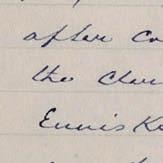 after Co
the Cler
Ennis Ke